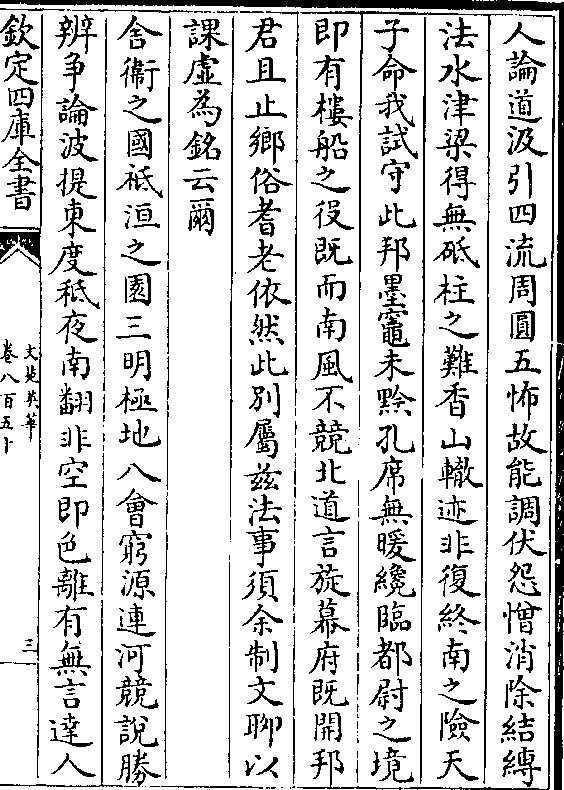 人論道汲引四流周圓五怖故能調伏怨憎消除結縛
法水津梁得無砥柱之難香山轍迹非復終南之險天
子命我試守此邦墨竈未黔孔席無暖纔臨都尉之境
即有樓船之役既而南風不競北道言旋幕府既開邦
君且止鄉俗耆老依然此別屬兹法事須余制文聊以
課虛為銘云爾
舍衞之國祗洹之園三明極地八會窮源連河競說勝
辨争論波提東度秖夜南翻非空即色離有無言達人
欽定四庫全書
文苑英華
卷八百五十
三